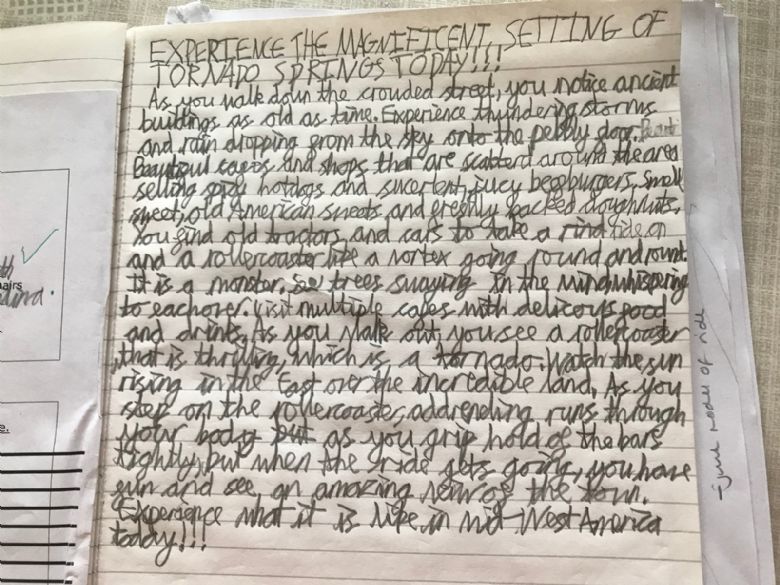 EXPERIENCE THE MAGNIFICENT SETTING OF
TORNADO SPRINGS TODAY!!!
As you walk down the crouded street, you notice ancient
buildings as old as time. Experience thundering storms
and rain dropping from the sky onto the pebbly door.
Beautiful cafes and shops that are scatterd around the area
selling spicy hotdogs and sucerlent, jucy beefburgers, Smell
sweet, old American sweets and freshly backed doughnuts.
You find old tractors and cars to take a rind ride on
and a rollercoaster like a vortex going round and round.
It is a monster. See trees swaying in the wind whispering
to eachover. Visit multiple cafes with delicous food
and drinks. As you walk out, you see a rollercoaster
that is thrilling, which is a tornado. Watch the sun
rising in the East over the incredible land. As you
step on the rollercoaster, addrending runs through
your body but as you grip hold of the bars
tightly, but when the ride gets going, you have
fun and see, an amazing veiw of the town.
Experience what it is like in mid-West America
today!!!